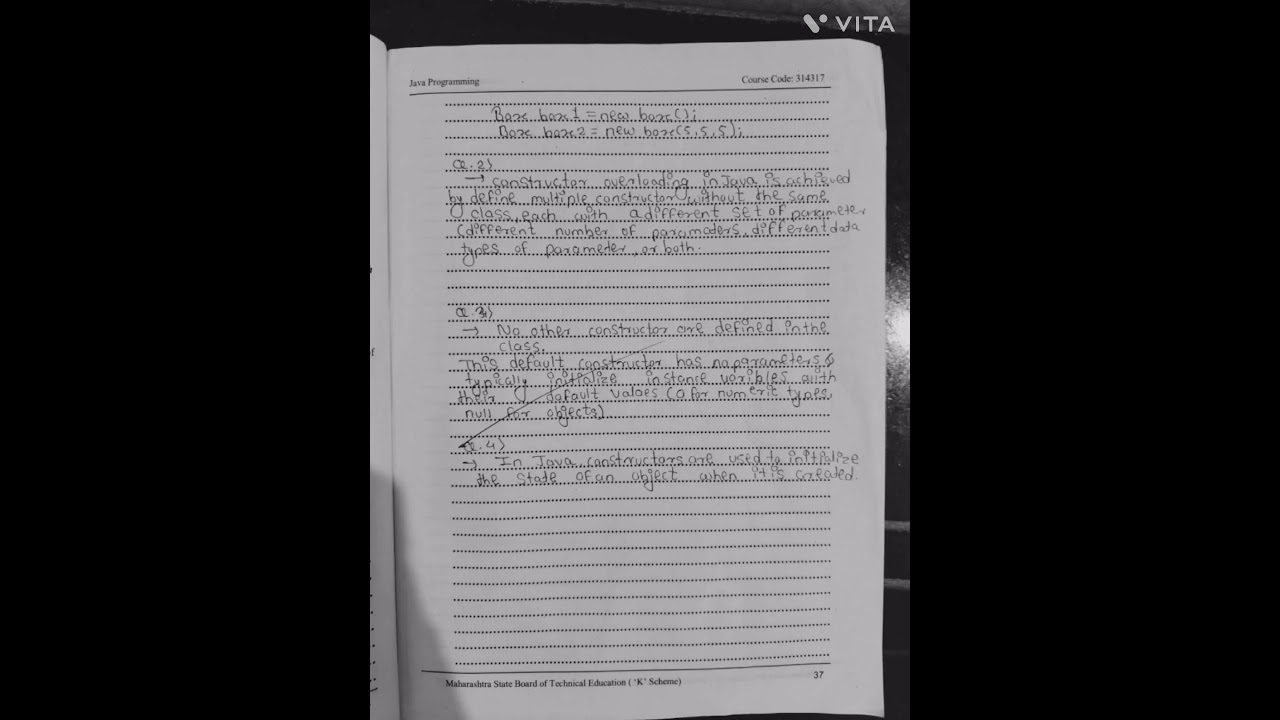 VITA
Java Programming Course Code: 314317
Box box1 = new box();
Box box2 = new box(5,5,5);
Q.2)
→ constructor overloading in Java is achieved
by define multiple constructor without the same
class, each with a different set of parameter
(different number of paramaters, different data
types of parameter, or both.
Q.3)
→ No other constructor are defined in the
class.
This default constructor has no parameters &
typically initialize instance varibles with
their default values (0 for numeric types,
null for objects)
Q.4)
→ In Java, constructors are used to initialize
the state of an object when it is created.
Maharashtra State Board of Technical Education ( ‘K’ Scheme) 37